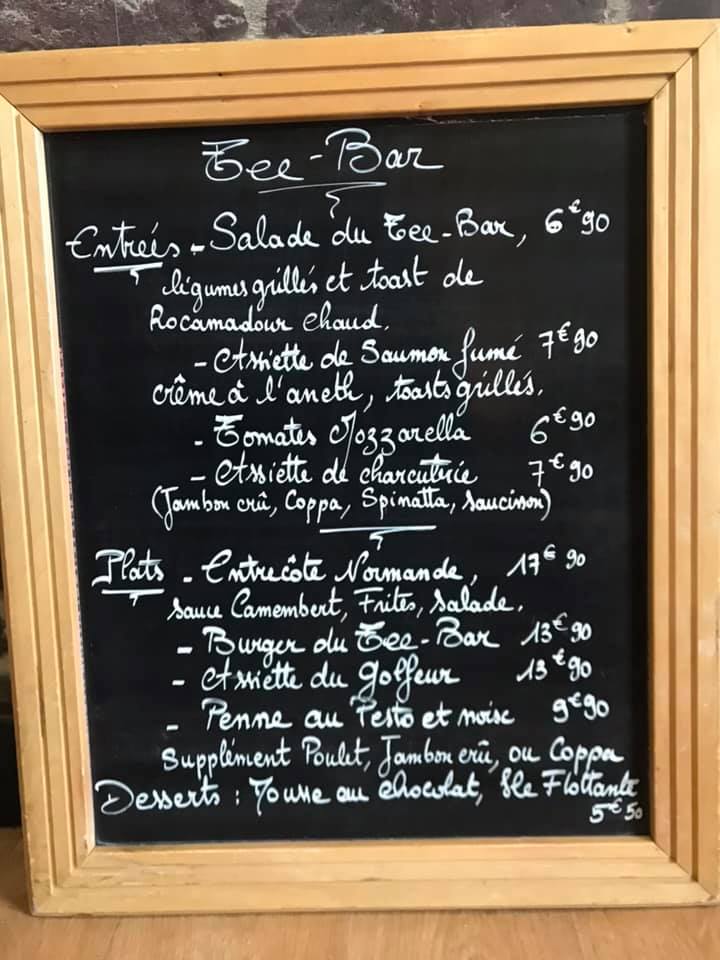 Tee-Bar
Entreés - Salade du Tee-Bar, 6€90
légumes grillés et toast de
Rocamadour chaud.
- Assiette de Saumon fumé 7€90
crème à l'aneth, toasts grillés.
- Tomates Mozzarella 6€90
- Assiette de charcuterie 7€90
(Jambon crû, Coppa, Spinatta, saucisson)
Plats - Entrecôte Normande, 17€90
sauce Camembert, Frites, salade.
- Burger du Tee-Bar 13€90
- Assiette du Golfeur 13€90
- Penne au Pesto et noix 9€90
Supplément Poulet, Jambon crû, ou Coppa
Desserts : Mousse au chocolat, Ile Flottante
5€50